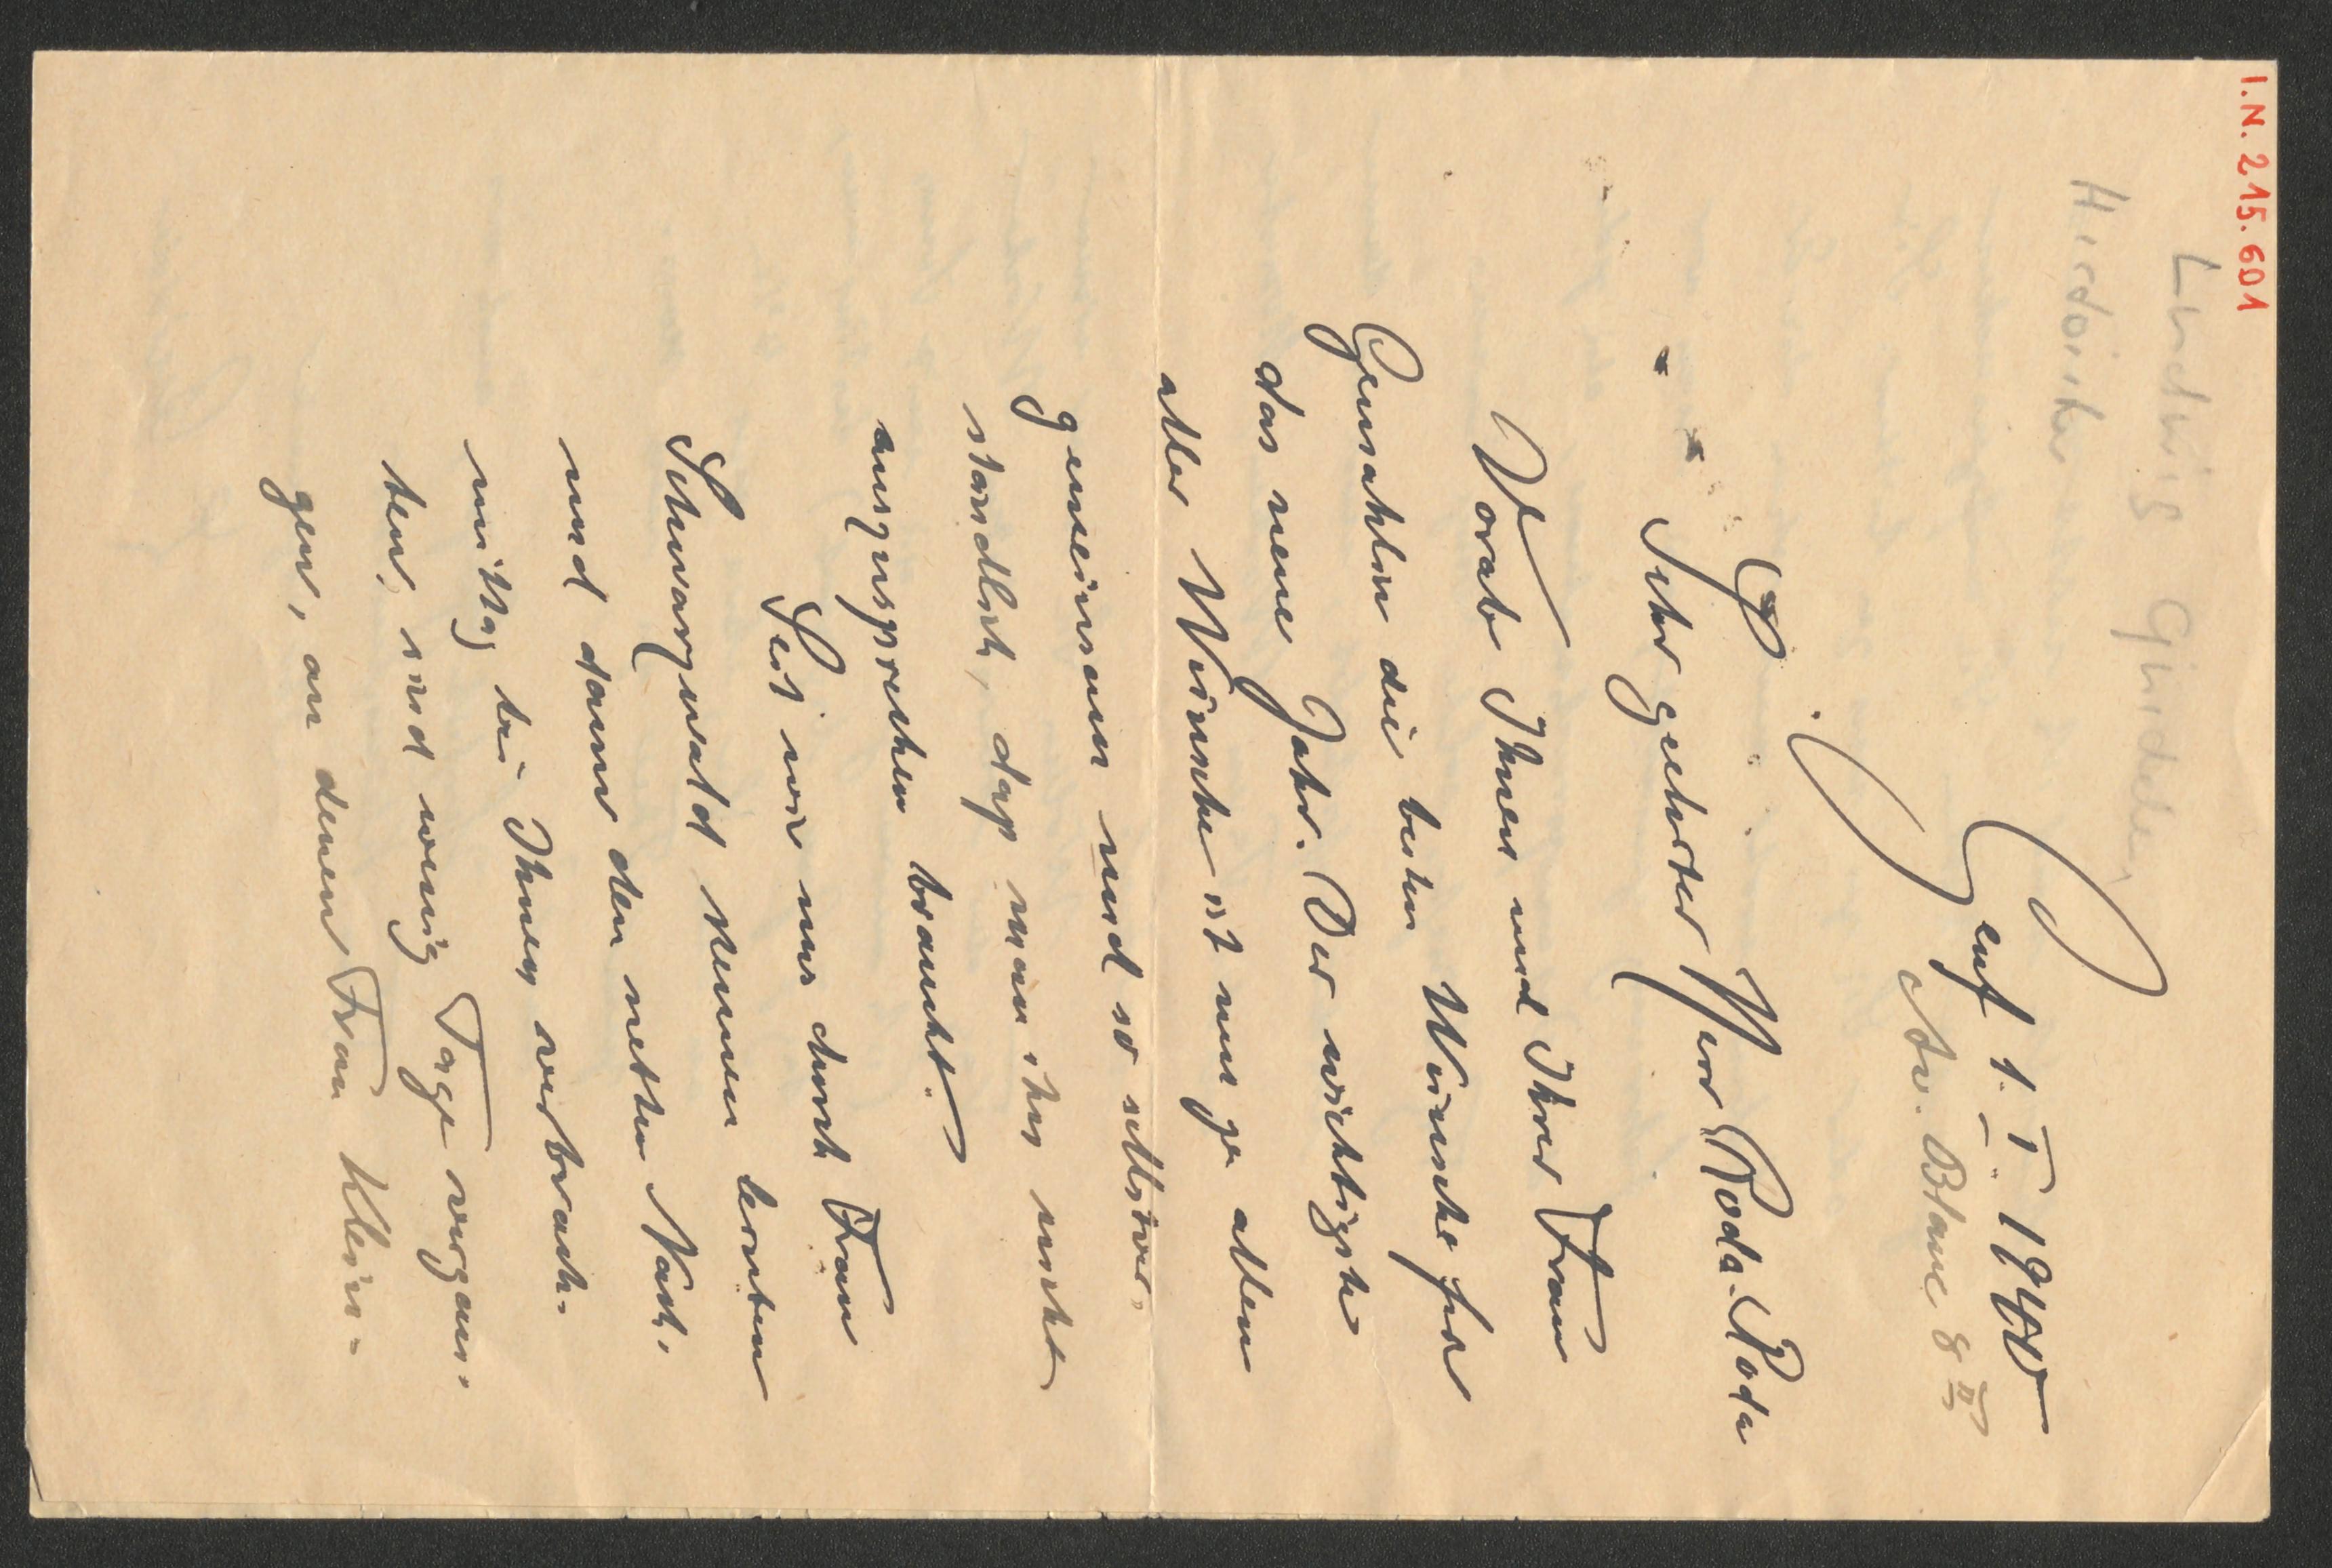 I.N. 215.601
Ludwig
Genf 1. I. 1940
Av. Blanc 8 II
Sehr geehrter Herr Roda-Roda
Vorab Ihnen und Ihrer Frau
Gemahlin die besten Wünsche für
das neue Jahr. Der wichtigste
aller Wünsche ist nun ja allen
gemeinsam und so selbstver-
ständlich, dass man ihn nicht
auszusprechen braucht.
Seit wir uns durch Frau
Schwarzwald kennen lernten
und dann den netten Nach-
mittag bei Ihnen verbrach-
ten, sind wenig Tage vergan-
gen, an denen Frau Klein-